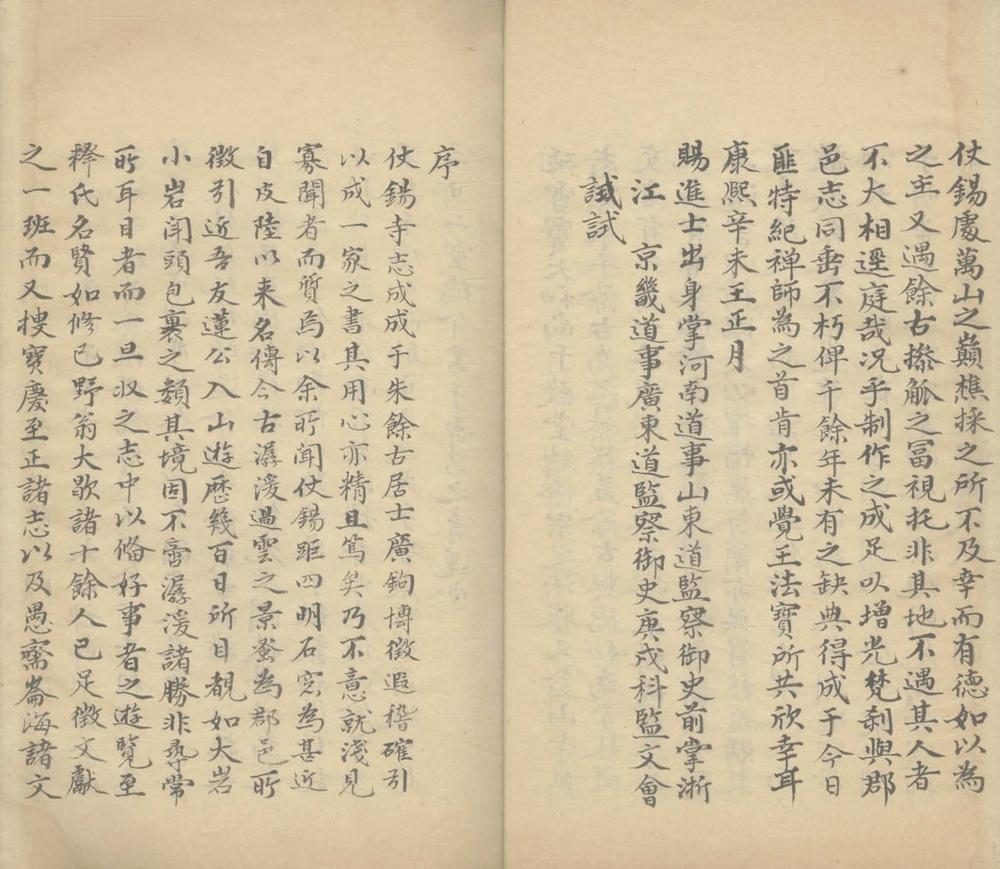 仗錫處萬山之巔樵採之所不及幸而有德如以為
之主又遇餘古摻觚之冨視托非其地不遇其人者
不大相逕庭哉况乎制作之成足以增光梵刹與郡
邑志同垂不朽俾千餘年未有之缺典得成于今日
匪特紀禅師為之首肯亦或覺王法寶所共欣幸耳
康熙辛未王正月
賜進士出身掌河南道事山東道監察御史前掌浙
江 京畿道事廣東道監察御史庚戌科監文會
試試
序
仗錫寺志成成于朱餘古居士廣鉤博徵遐稽確引
以成一家之書其用心亦精且篤矣乃不意就淺見
寡聞者而質焉以余所聞仗錫距四明石窓為甚近
自皮陸以来名傳今古潺湲過雲之景登為郡邑所
徵引近吾友蓮公入山遊歴幾百日所目覩如大岩
小岩洞頭包裹之類其境固不啻潺湲諸勝非尋常
所耳目者而一旦収之志中以俻好事者之遊覽至
釋氏名賢如修已野翁大歇諸十餘人已足徵文獻
之一班而又搜寶慶至正諸志以及愚齋崙海諸文